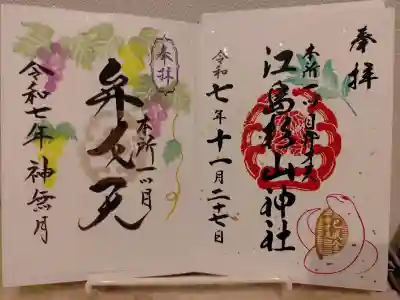 奉拝
本所一ツ目弁天
江島杉山神社
令和七年十一月二十七日
奉拝
本所一ツ目
弁天
令和七年神無月